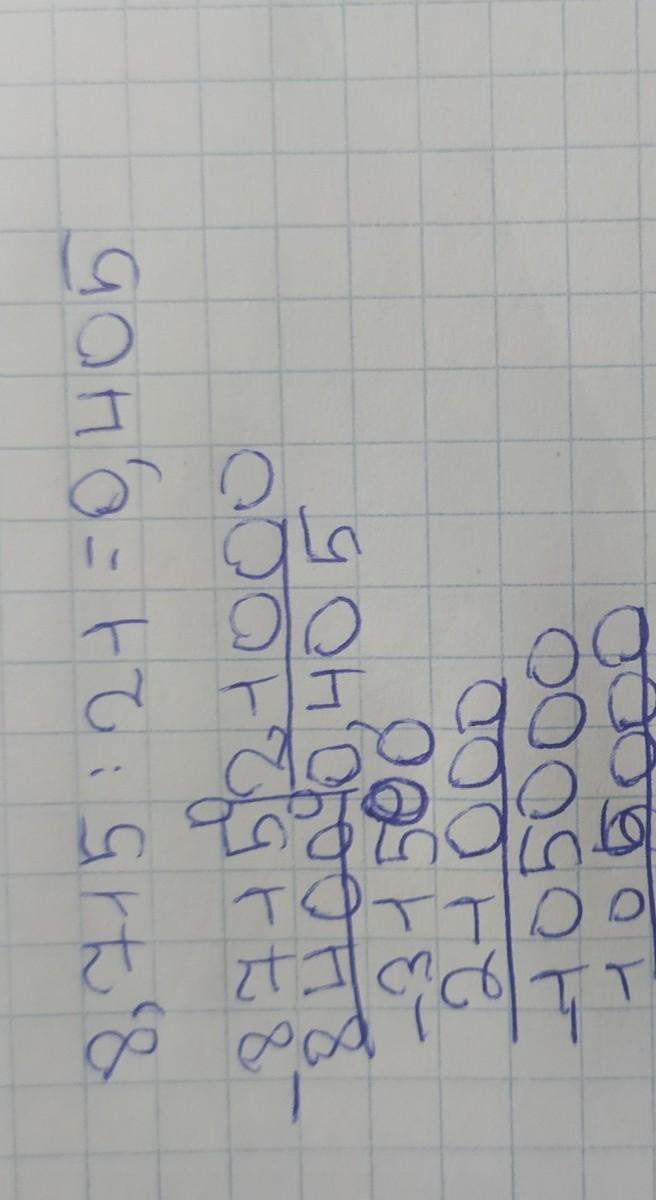 8,715 : 21 = 0,405
- 87150 21000
84000 0,405
- 31500
21000
- 105000
105000